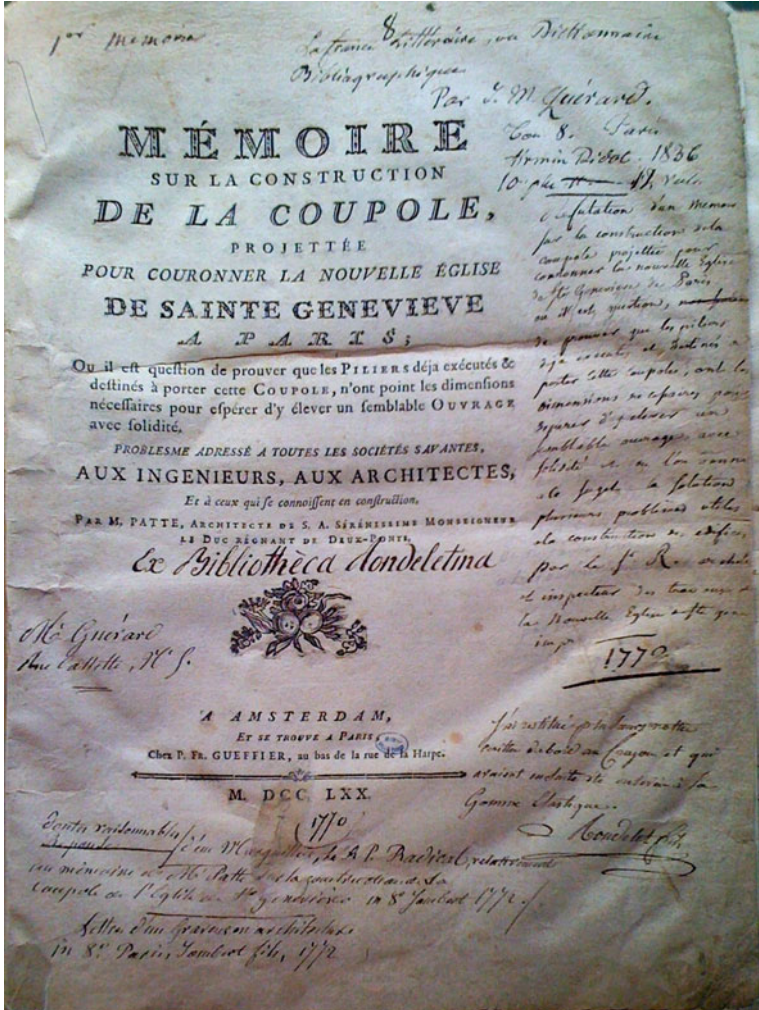 1er Memoire
8
La france Littéraire, ou Dictionnaire
Bibliographique
Par J. M. Quérard.
Tom 8. Paris
firmin Didot. 1836
MÉMOIRE
SUR LA CONSTRUCTION
DE LA COUPOLE,
PROJETTÉE
POUR COURONNER LA NOUVELLE ÉGLISE
DE SAINTE GENEVIEVE
A PARIS;
Ou il est question de prouver que les PILIERS déja exécutés &
destinés à porter cette COUPOLE, n'ont point les dimensions
nécessaires pour espérer d'y élever un semblable OUVRAGE
avec solidité.
PROBLESME ADRESSÉ A TOUTES LES SOCIÉTÉS SAVANTES,
AUX INGENIEURS, AUX ARCHITECTES,
Et à ceux qui se connoissent en construction.
PAR M. PATTE, ARCHITECTE DE S. A. SÉRÉNISSIME MONSEIGNEUR
LE DUC RÉGNANT DE DEUX-PONTS.
Ex Bibliothèca Rondeletina
A AMSTERDAM,
ET SE TROUVE A PARIS,
Chez P. FR. GUEFFIER, au bas de la rue de la Harpe.
M. DCC. LXX.
1770
refutation d'un memoire
sur la construction de la
coupole projettée pour
couronner la nouvelle Eglise
de Ste Genevieve de Paris
ou il est question,
de prouver que les piliers
deja executés et destinés a
porter cette coupole, ont les
dimensions necessaires pour
esperer d'y elever un
semblable ouvrage avec
solidité et ou l'on donne
la solution
plusieurs problêmes utiles
a la construction des edifices
par le Sr R.
et inspecteur des travaux de
la Nouvelle Eglise
1772
Mr Guérard
Rue
J'ai restitué
écrites d'abord au Crayon et qui
avaient ensuite été enlevées à la
Gomme élastique.
Rondelet fils
Doutes raisonnables
Reponse d'un Marguillier, de à P. Radical, relativement
au mémoire de Mr Patte sur la construction de la
coupole de l'Eglise de Ste Genevieve in 8° Jombert 1772
Lettre d'un graveur en architecture
in 8° Paris, Jombert fils, 1772